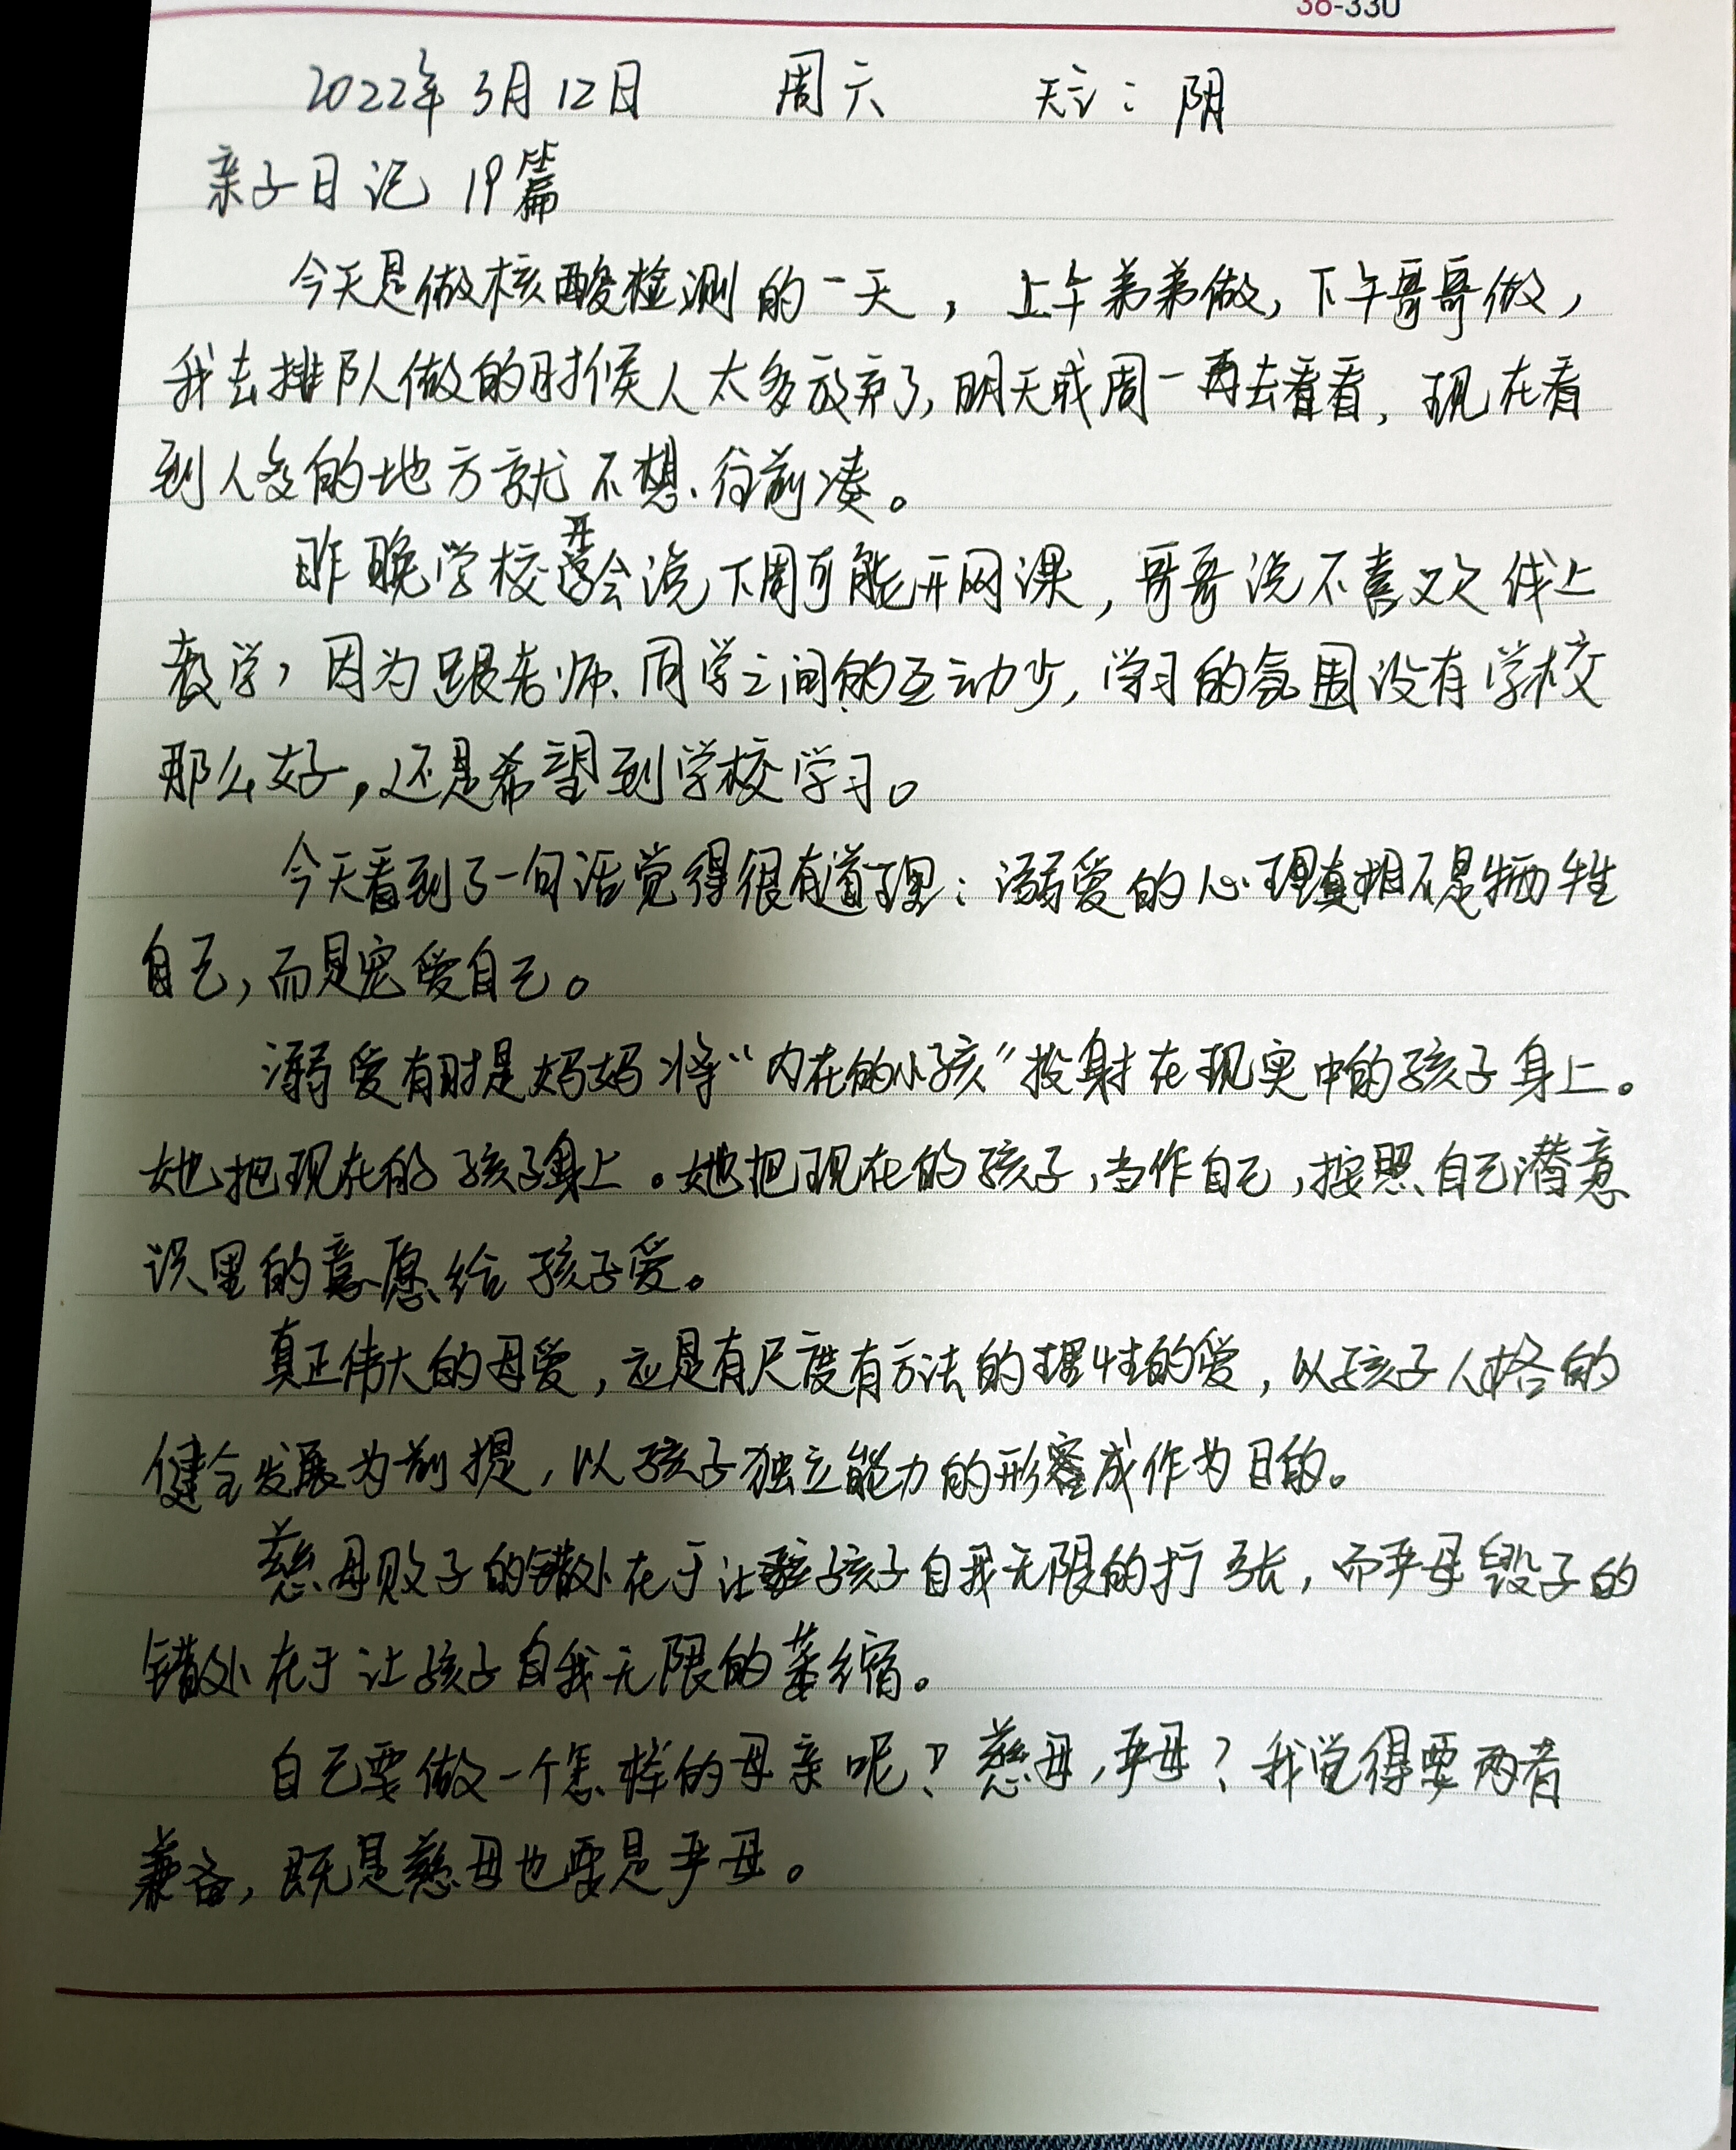 36-330
2022年3月12日 周六 天气：阴
亲子日记 19篇
今天是做核酸检测的一天，上午弟弟做，下午哥哥做，
我去排队做的时候人太多放弃了，明天或周一再去看看，现在看
到人多的地方就不想往前凑。
昨晚学校开会说下周可能开网课，哥哥说不喜欢线上
教学，因为跟老师、同学之间的互动少，学习的氛围没有学校
那么好，还是希望到学校学习。
今天看到了一句话觉得很有道理：溺爱的心理真相不是牺牲
自己，而是宠爱自己。
溺爱有时是妈妈将“内在的小孩”投射在现实中的孩子身上。
她把现在的孩子身上。她把现在的孩子，当作自己，按照自己潜意
识里的意愿给孩子爱。
真正伟大的母爱，应是有尺度有方法的理性的爱，以孩子人格的
健全发展为前提，以孩子独立能力的形成作为目的。
慈母败子的错处在于让孩子自我无限的扩张，而严母毁子的
错处在于让孩子自我无限的萎缩。
自己要做一个怎样的母亲呢？慈母，严母？我觉得要两者
兼备，既是慈母也要是严母。